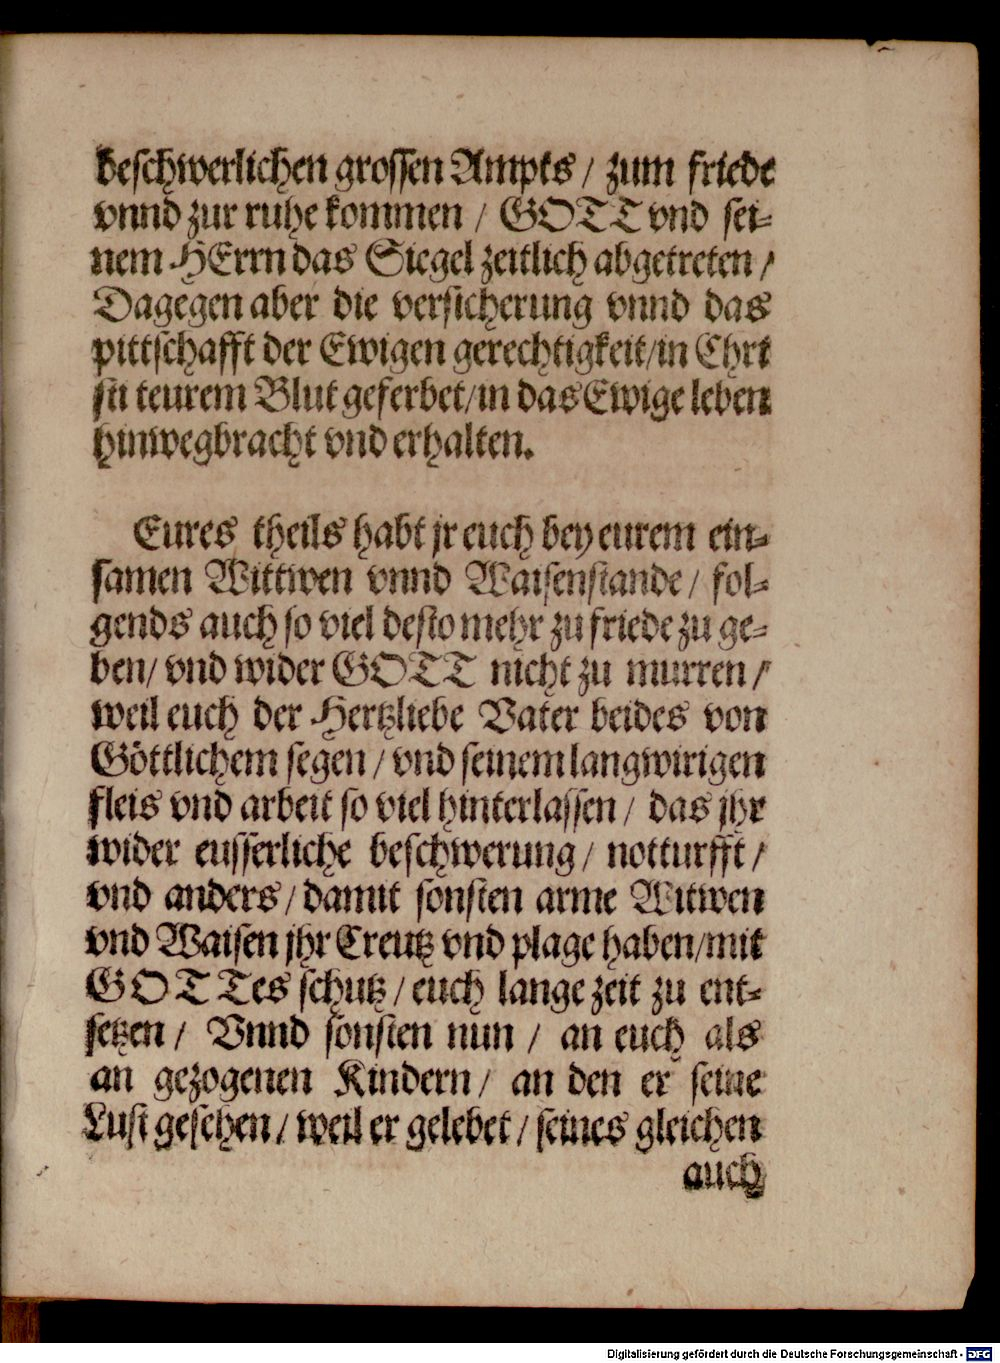 beschwerlichen grossen Ampts / zum friede
vnnd zur ruhe kommen / GOTT vnd sei-
nem HErrn das Siegel zeitlich abgetreten /
Dagegen aber die versicherung vnnd das
pittschafft der Ewigen gerechtigkeit/in Chri
sti teurem Blut geferbet/in das Ewige leben
hinwegbracht vnd erhalten.
Eures theils habt jr euch bey eurem ein-
samen Wittwen vnnd Waisenstande / fol-
gends auch so viel desto mehr zu friede zu ge-
ben/ vnd wider GOTT nicht zu murren /
weil euch der Hertzliebe Vater beides von
Göttlichem segen / vnd seinem langwirigen
fleis vnd arbeit so viel hinterlassen / das jhr
wider eusserliche beschwerung / notturfft /
vnd anders / damit sonsten arme Witwen
vnd Waisen jhr Creutz vnd plage haben/mit
GOTTes schutz / euch lange zeit zu ent-
setzen / Vnnd sonsten nun / an euch als
an gezogenen Kindern / an den er seine
Lust gesehen / weil er gelebet / seines gleichen
auch
Digitalisierung gefördert durch die Deutsche Forschungsgemeinschaft - DFG